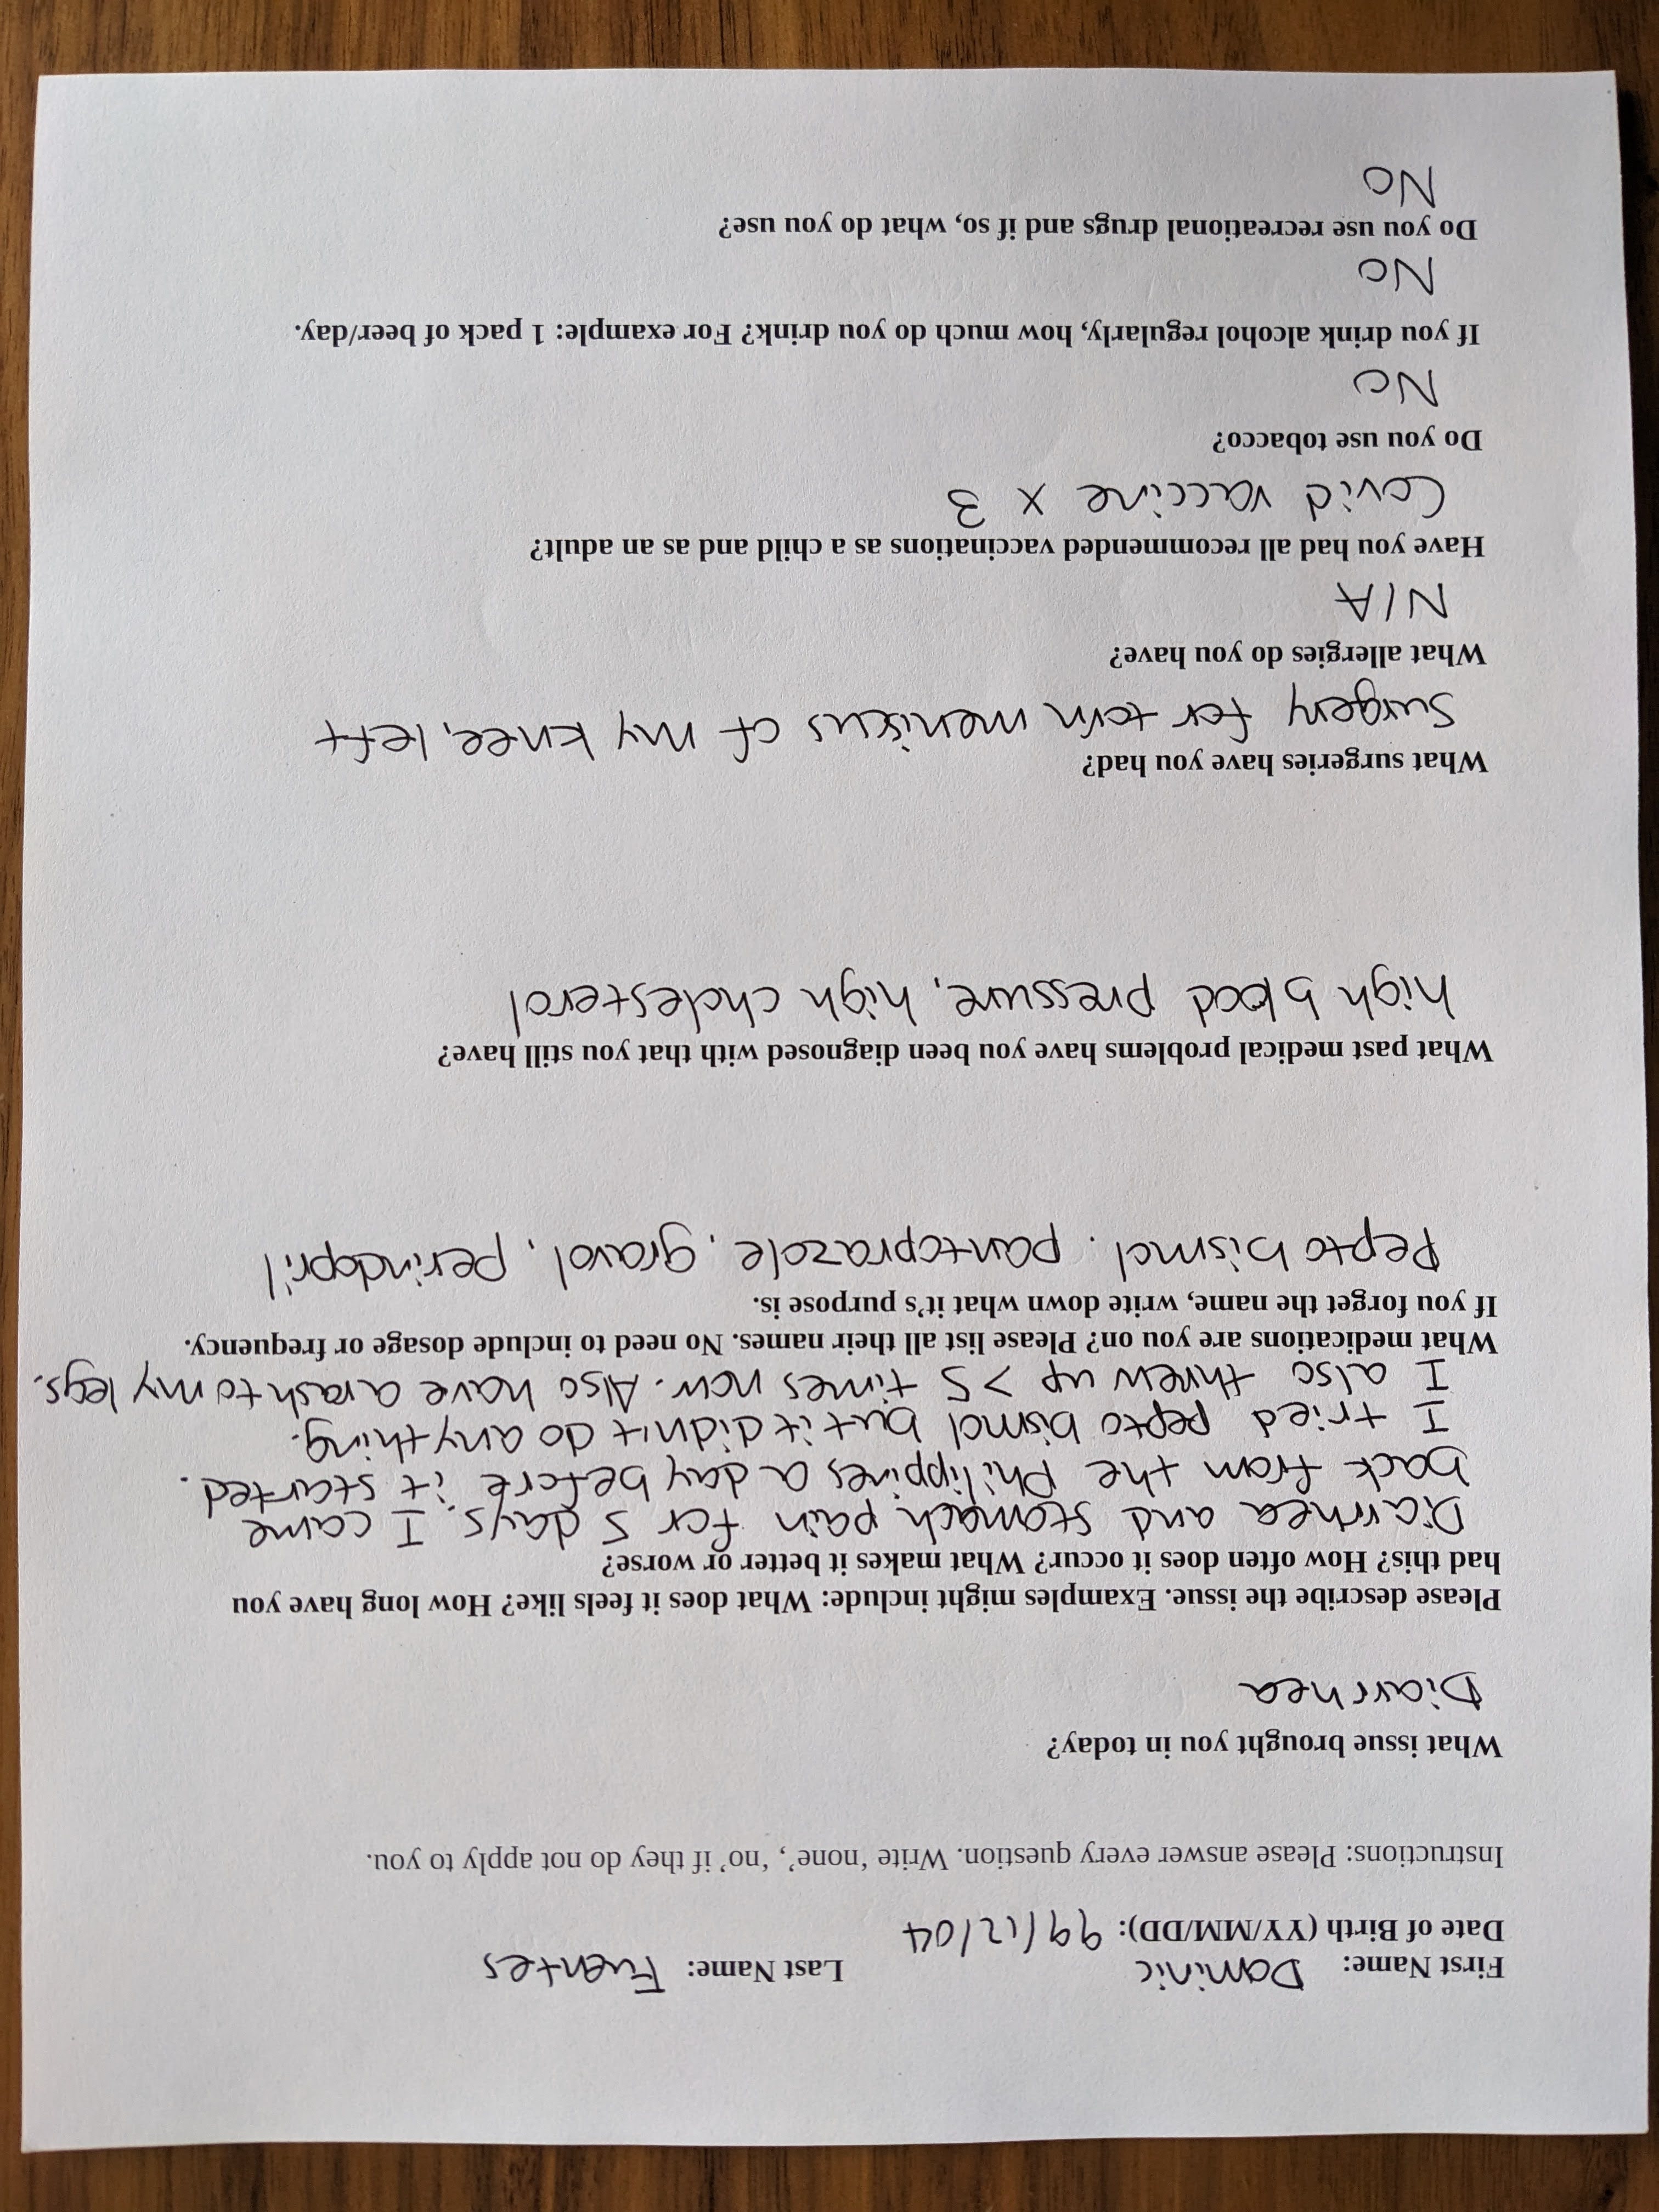 First Name: Dominic Last Name: Fuentes
Date of Birth (YY/MM/DD): 99/12/04
Instructions: Please answer every question. Write ‘none’, ‘no’ if they do not apply to you.
What issue brought you in today?
Diarrhea
Please describe the issue. Examples might include: What does it feels like? How long have you
had this? How often does it occur? What makes it better or worse?
Diarrhea and stomach pain for 5 days. I came
back from the Philippines a day before it started.
I tried pepto bismol but it didn't do anything.
I also threw up > 5 times now. Also have a rash to my legs.
What medications are you on? Please list all their names. No need to include dosage or frequency.
If you forget the name, write down what it’s purpose is.
Pepto bismol, pantoprazole, gravol, perindopril
What past medical problems have you been diagnosed with that you still have?
high blood pressure, high cholesterol
What surgeries have you had?
Surgery for torn meniscus of my knee, left
What allergies do you have?
N/A
Have you had all recommended vaccinations as a child and as an adult?
Covid vaccine x 3
Do you use tobacco?
No
If you drink alcohol regularly, how much do you drink? For example: 1 pack of beer/day.
No
Do you use recreational drugs and if so, what do you use?
No